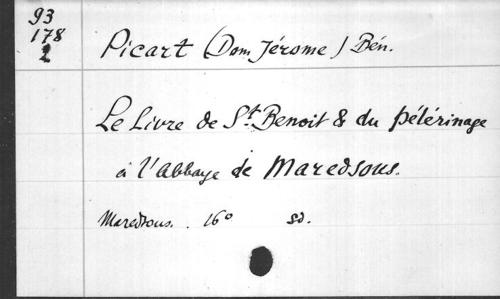 93
178
2
Picart (Dom Jérome) Bén.
Le Livre de St. Benoit & du pélérinage
à l'Abbaye de Maredsous.
Maredsous. 16° sd.